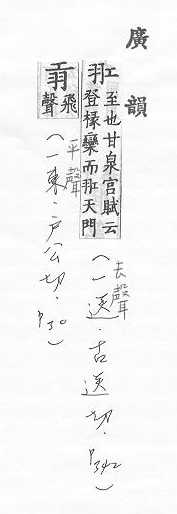 廣韻
羾
至也甘泉宮賦云
登椽欒而羾天門
去聲
(一送.古送切.P342)
飛聲
平聲
(一東.戶公切.P30)